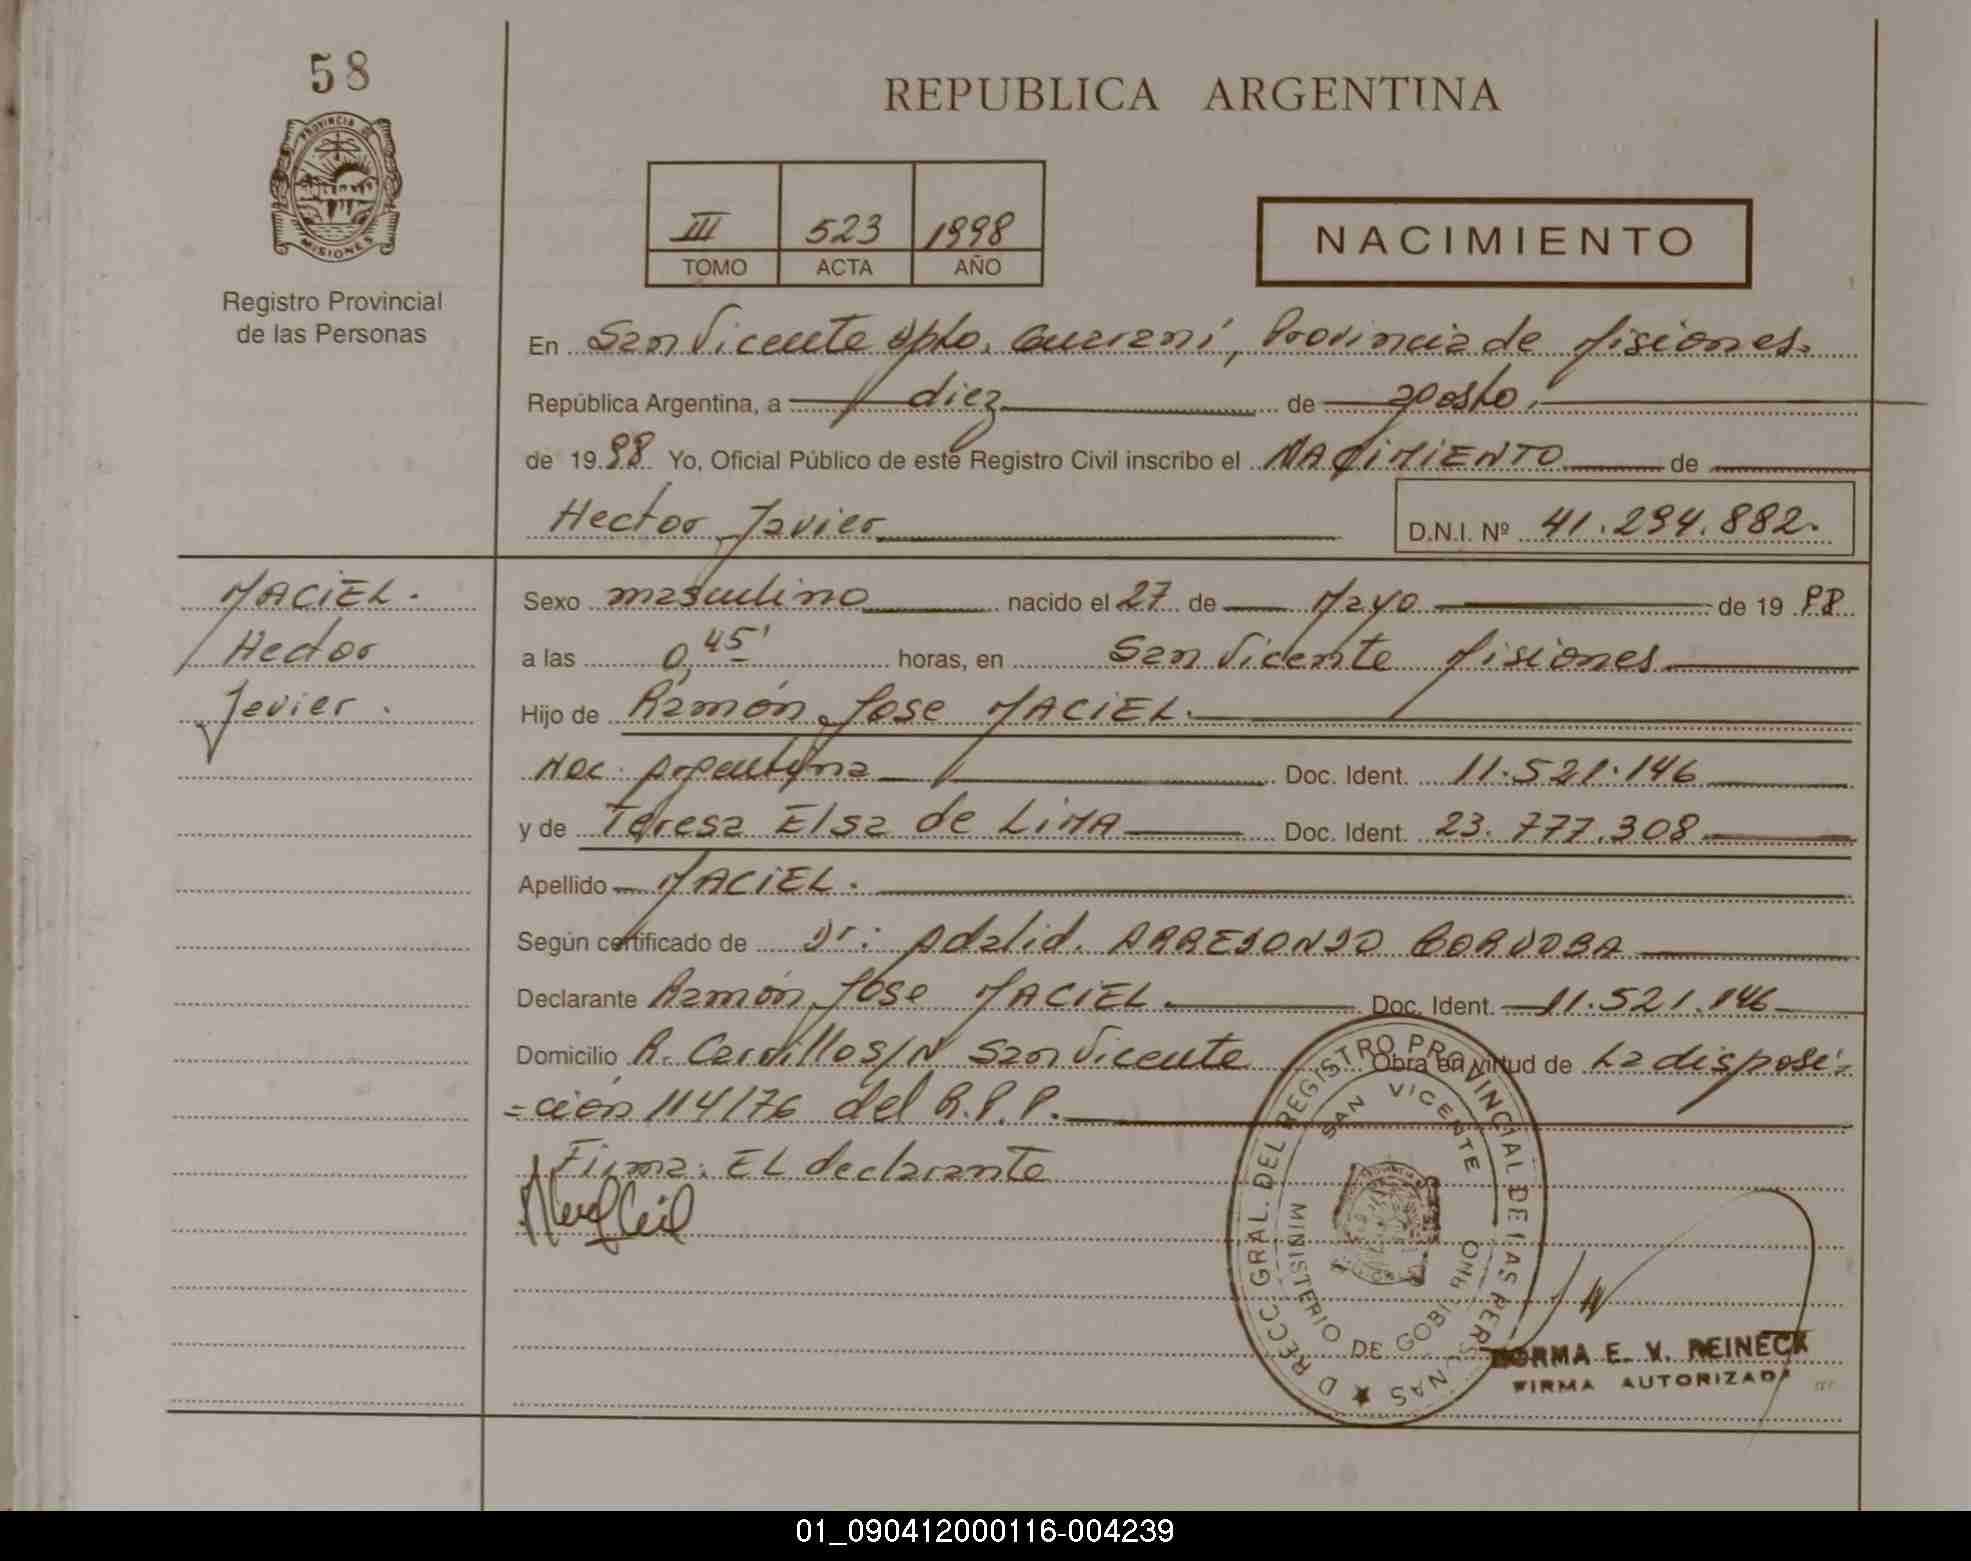 58
PROVINCIA DE
MISIONES
Registro Provincial
de las Personas
REPUBLICA ARGENTINA
III 523 1998
TOMO ACTA AÑO
NACIMIENTO
En San Vicente Dpto. Guaraní, Provincia de Misiones.
República Argentina, a diez de agosto,
de 1998 Yo, Oficial Público de este Registro Civil inscribo el NACIMIENTO de
Hector Javier D.N.I. Nº 41.294.882.
MACIEL.
Hector
Javier.
Sexo masculino nacido el 27 de Mayo de 1998
a las 0,45' horas, en San Vicente Misiones
Hijo de Ramón Jose MACIEL.
Nac. Argentina Doc. Ident. 11.521.146
y de Teresa Elsa de LiMA Doc. Ident. 23.777.308
Apellido MACIEL.
Según certificado de Dr: Adalid. ARREDONDO CORDOBA
Declarante Ramón Jose MACIEL. Doc. Ident. 11.521.146
Domicilio R. Carrillo s/N San Vicente Obra en virtud de La disposi-
-ción 114/76 del R.P.P.
Firma: EL declarante
D RECC GRAL. DEL REGISTRO PROVINCIAL DE LAS PERSONAS
SAN VICENTE
MINISTERIO DE GOBIERNO
NORMA E. V. REINECK
FIRMA AUTORIZADA
01_090412000116-004239